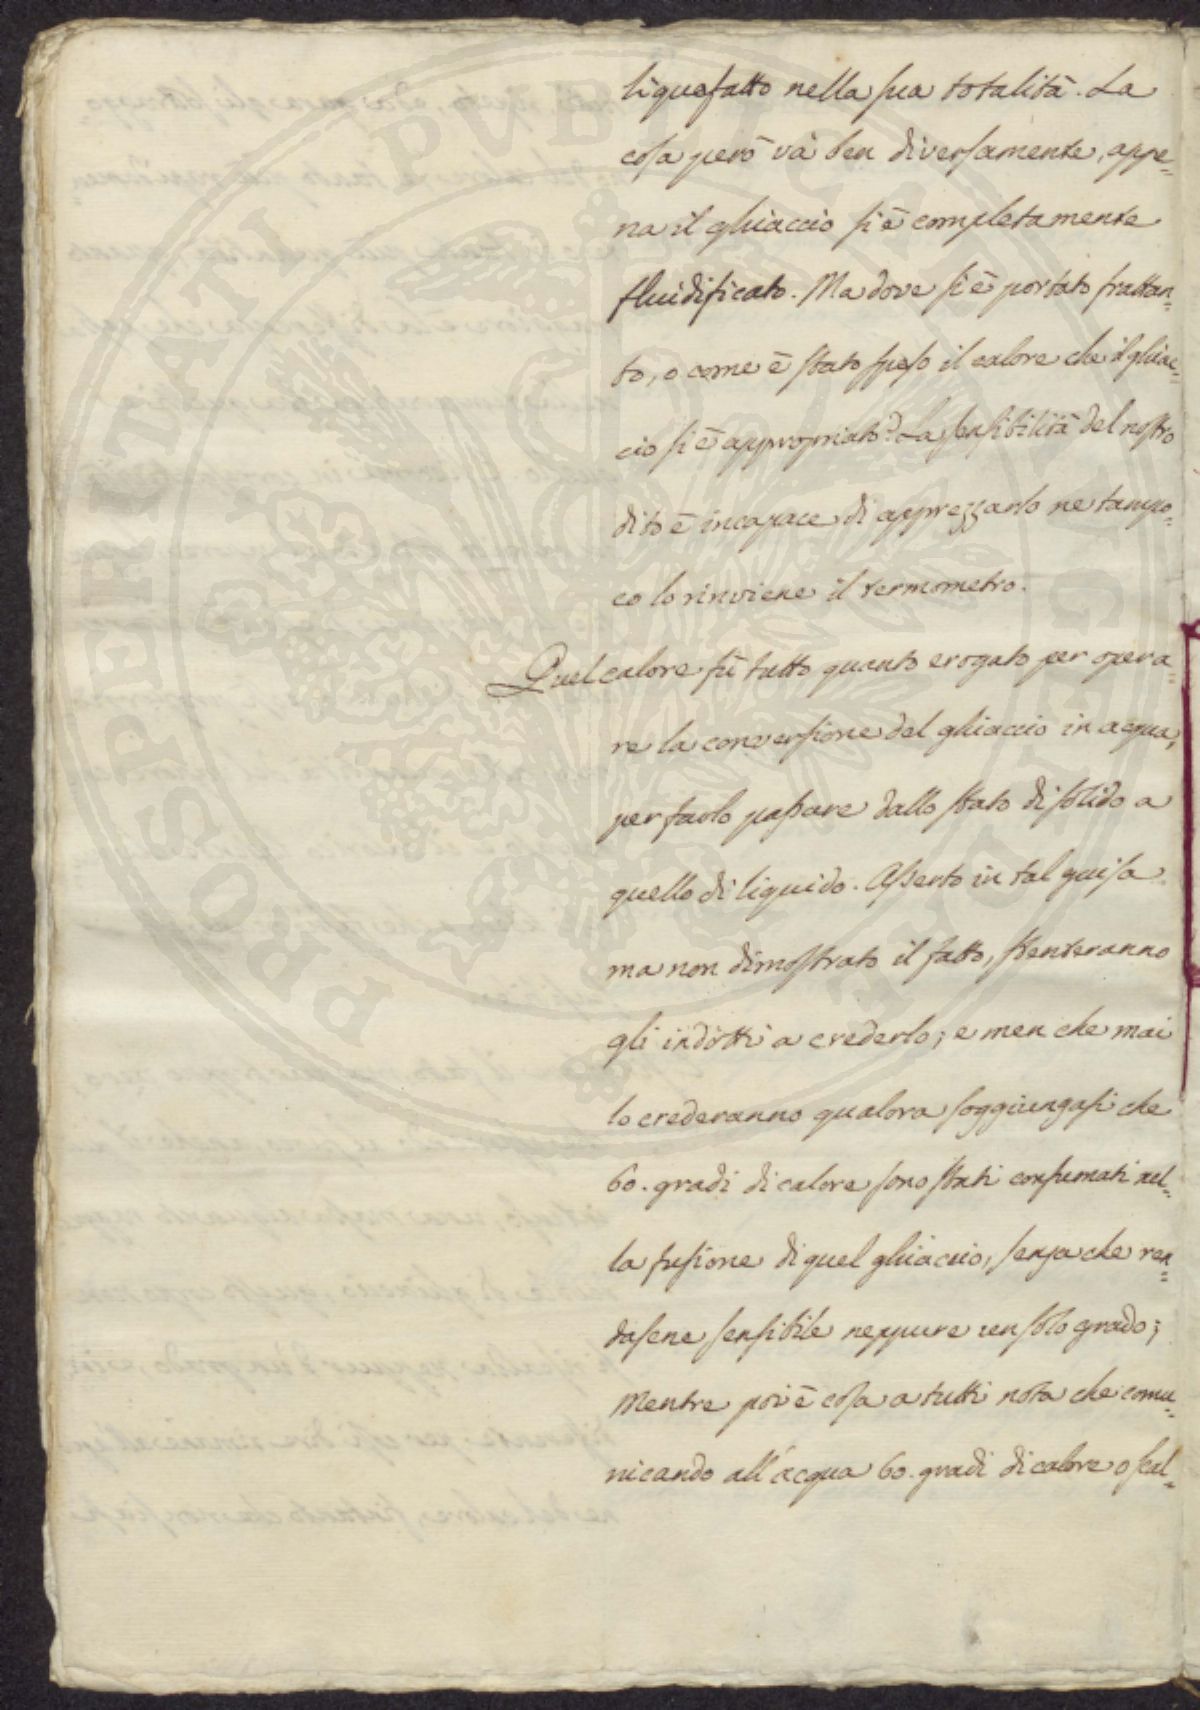 liquefatto nella sua totalità. La
cosa però và ben diversamente, appe=
na il ghiaccio si è completamente
fluidificato. Ma dove si è portato frattan=
to, o come è stato speso il calore che il ghiac=
cio si è appropriato? La sensibilità del nostro
dito è incapace di apprezzarlo ne tampo=
co lo rinviene il termometro.
Quel calore fù tutto quanto erogato per opera=
re la conversione del ghiaccio in acqua,
per farlo passare dallo stato di solido a
quello di liquido. Asserto in tal guisa
ma non dimostrato il fatto, stenteranno
gli indotti a crederlo; e men che mai
lo crederanno qualora soggiungasi che
60. gradi di calore sono stati consumati nel=
la fusione di quel ghiaccio, senza che ren=
dasene sensibile neppure un solo grado;
mentre poi è cosa a tutti nota che comu=
nicando all'acqua 60. gradi di calore o scal=
PROSPERITATI PUBLICAE AUGENDAE